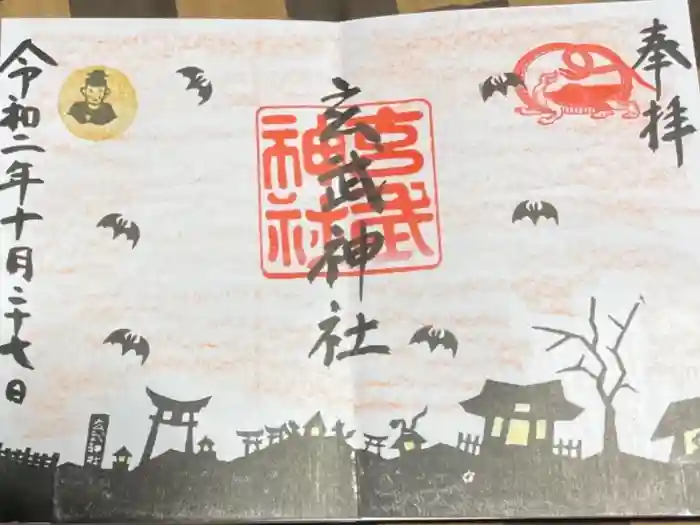 奉拝
玄武神社
玄武
神社
令和二年十月二十七日